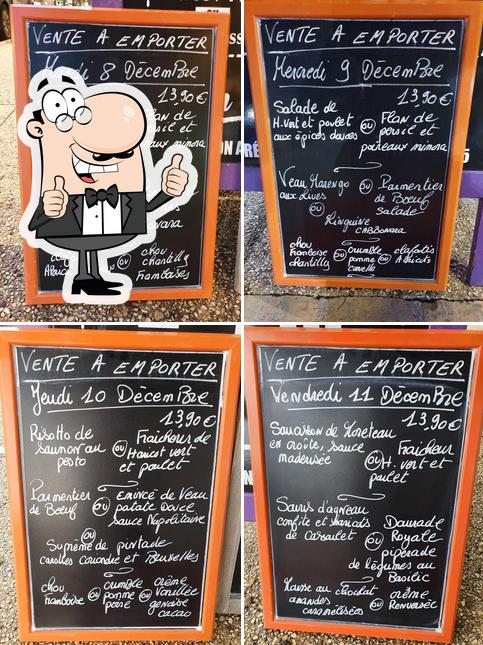 VENTE A EMPORTER
8 DÈCEMBRE
13,90€
chou
chantilly
framboises
ou
VENTE A EMPORTER
Mercredi 9 DÈCEMBRE
13,90€
Salade de
H.vert et poulet
aux épices douces
ou
Flan de
persil et
poireaux mimosa
Veau Marengo
aux olives
ou
Parmentier
de Boeuf
salade
ou
linguine
CARBONARA
chou
framboise
chantilly
ou
crumble
pomme
ou
clafoutis
Abricots
VENTE A EMPORTER
Jeudi 10 DÈCEMBRE
13,90€
Risotto de
saumon au
pesto
ou
Fraîcheur de
Haricot vert
et poulet
Parmentier
de Boeuf
ou
Emincé de Veau
patate Douce
sauce Napolitaine
ou
Suprême de pintade
carottes et Bruxelles
chou
framboise
ou
crumble
pomme
poire
ou
crème
Vanillée
génoise
cacao
VENTE A EMPORTER
Vendredi 11 DÈCEMBRE
13,90€
Saucisson de Morteau
en croûte, sauce
madérisée
ou
Fraîcheur
H. vert et
poulet
Souris d'agneau
confite et haricots
de Cassoulet
ou
Daurade
Royale
piperade
de légumes au
Basilic
Mousse au chocolat
amandes
caramélisées
ou
crème
Renversée